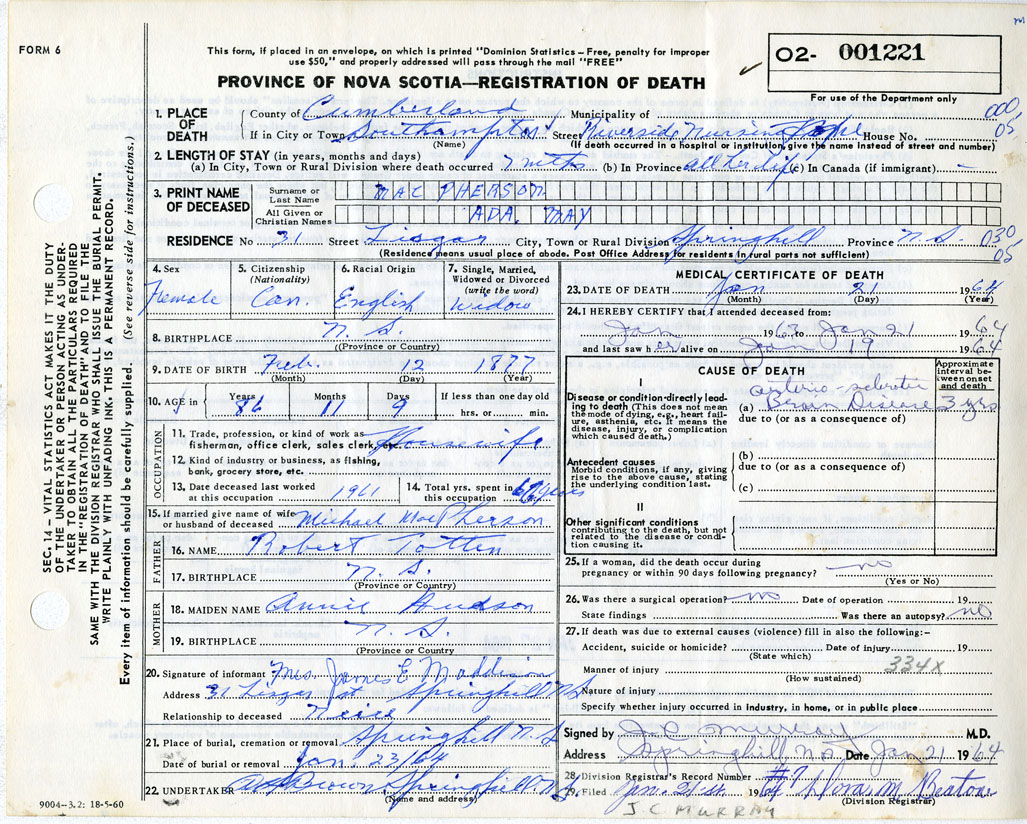 FORM 6
This form, if placed in an envelope, on which is printed "Dominion Statistics – Free, penalty for improper
use $50," and properly addressed will pass through the mail "FREE"
PROVINCE OF NOVA SCOTIA—REGISTRATION OF DEATH
✓
O2- 001221
For use of the Department only
1. PLACE OF DEATH
County of Cumberland Municipality of 000,
If in City or Town Southampton Street Riverside Nursing Home House No. 05
(Name) (If death occurred in a hospital or institution, give the name instead of street and number)
2. LENGTH OF STAY (in years, months and days)
(a) In City, Town or Rural Division where death occurred 7 mths (b) In Province all her life (c) In Canada (if immigrant) —
3. PRINT NAME OF DECEASED
Surname or Last Name MAC PHERSON
All Given or Christian Names ADA MAY
RESIDENCE No 31 Street Lisgar City, Town or Rural Division Springhill Province N.S. 030
05
(Residence means usual place of abode. Post Office Address for residents in rural parts not sufficient)
4. Sex Female
5. Citizenship (Nationality) Can.
6. Racial Origin English
7. Single, Married, Widowed or Divorced (write the word) Widow
8. BIRTHPLACE N.S.
(Province or Country)
9. DATE OF BIRTH Feb. 12 1877
(Month) (Day) (Year)
10. AGE in Years 86 Months 11 Days 9 If less than one day old hrs. or min.
OCCUPATION
11. Trade, profession, or kind of work as fisherman, office clerk, sales clerk, etc. Housewife
12. Kind of industry or business, as fishing, bank, grocery store, etc.
13. Date deceased last worked at this occupation 1961
14. Total yrs. spent in this occupation years
15. If married give name of wife or husband of deceased Michael MacPherson
FATHER
16. NAME Robert Totten
17. BIRTHPLACE N.S.
(Province or Country)
MOTHER
18. MAIDEN NAME Annie Hudson
19. BIRTHPLACE N.S.
(Province or Country
20. Signature of informant Mrs. James E Maddison
Address 31 Lisgar St. Springhill N.S
Relationship to deceased Neice
21. Place of burial, cremation or removal Springhill N.S
Date of burial or removal Jan. 23/64
22. UNDERTAKER Brown Springhill N.S.
(Name and address)
9004—3.2: 18-5-60
MEDICAL CERTIFICATE OF DEATH
23. DATE OF DEATH Jan 21 1964
(Month) (Day) (Year)
24. I HEREBY CERTIFY that I attended deceased from:
Jan 1963 to Jan 21 1964
and last saw her alive on Jan 19 1964
CAUSE OF DEATH
Approximate interval between onset and death
I
Disease or condition directly leading to death (This does not mean the mode of dying, e.g., heart failure, asthenia, etc. It means the disease, injury, or complication which caused death.)
(a) arterio-sclerotic Brain Disease 3 yrs
due to (or as a consequence of)
Antecedent causes
Morbid conditions, if any, giving rise to the above cause, stating the underlying condition last.
(b)
due to (or as a consequence of)
(c)
II
Other significant conditions contributing to the death, but not related to the disease or condition causing it.
25. If a woman, did the death occur during
pregnancy or within 90 days following pregnancy? no
(Yes or No)
26. Was there a surgical operation? no Date of operation 19
State findings Was there an autopsy? no
27. If death was due to external causes (violence) fill in also the following:—
Accident, suicide or homicide? Date of injury 19
(State which)
334X
Manner of injury
(How sustained)
Nature of injury
Specify whether injury occurred in industry, in home, or in public place
Signed by J.C. Murray M.D.
Address Springhill N.S Date Jan 21 1964
28. Division Registrar's Record Number #7
29. Filed Jan. 21st 1964 Flora M Beaton
(Division Registrar)
J.C MURRAY
SEC. 14 — VITAL STATISTICS ACT MAKES IT THE DUTY
OF THE UNDERTAKER OR PERSON ACTING AS UNDER-
TAKER TO OBTAIN ALL THE PARTICULARS REQUIRED
IN THE "REGISTRATION OF DEATH" AND TO FILE THE
SAME WITH THE DIVISION REGISTRAR WHO SHALL ISSUE THE BURIAL PERMIT.
WRITE PLAINLY WITH UNFADING INK. THIS IS A PERMANENT RECORD.
Every item of information should be carefully supplied. (See reverse side for instructions.)